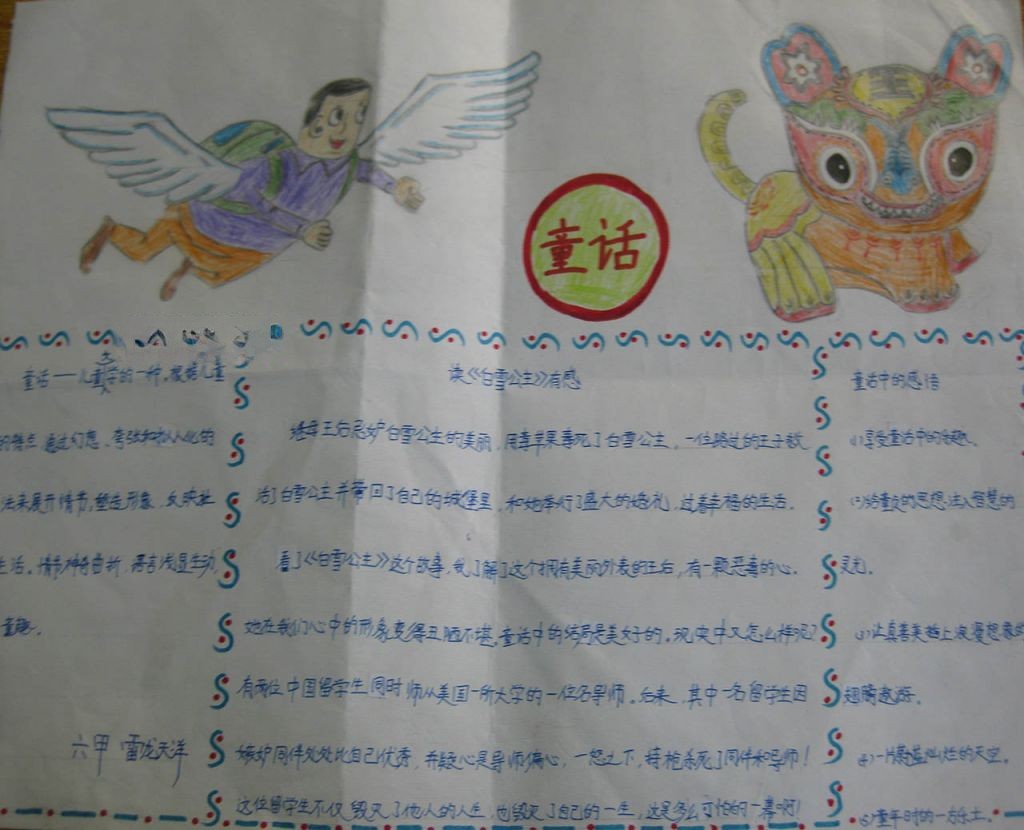 童话
王
童话——儿童文学的一种。根据儿童
的特点 通过幻想、夸张和拟人化的
法来展开情节，塑造形象，反映社
生活。情节神奇曲折，语言浅显生动，
童趣。
六甲 雷龙天洋
读《白雪公主》有感
继母王后忌妒白雪公主的美丽，用毒苹果毒死了白雪公主，一位路过的王子救
活了白雪公主并带回了自己的城堡里，和她举行了盛大的婚礼，过着幸福的生活。
看了《白雪公主》这个故事，我了解了这个拥有美丽外表的王后，有一颗恶毒的心。
她在我们心中的形象变得丑陋不堪，童话中的结局是美好的。现实中又怎么样呢？
有两位中国留学生同时师从美国一所大学的一位名导师。后来，其中一名留学生因
嫉妒同伴处处比自己优秀，并疑心是导师偏心，一怒之下，持枪杀死了同伴和导师！
这位留学生不仅毁灭了他人的人生，也毁灭了自己的一生，这是多么可怕的一幕啊！
童话中的感悟
(1)享受童话中的乐趣。
(2)给童贞的思想注入智慧的
灵光。
(3)让真善美插上浪漫想象的
翅膀遨游。
(4)一片蔚蓝灿烂的天空。
(5)童年时的一方乐土。